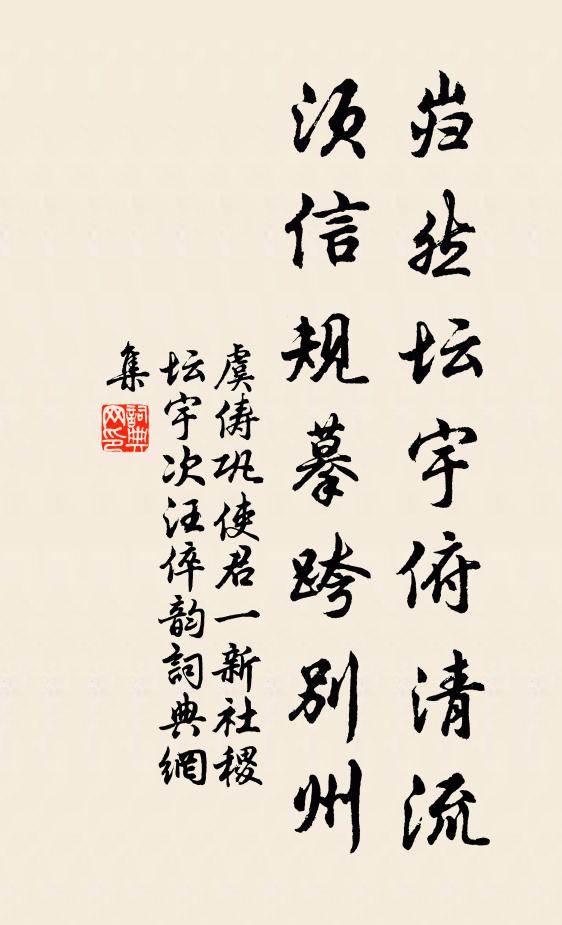 岿然坛宇俯清流
须信规摹跨别州
虞俦巩使君一新社稷
坛宇次汪倅韵詞典網
集
詞典
网印